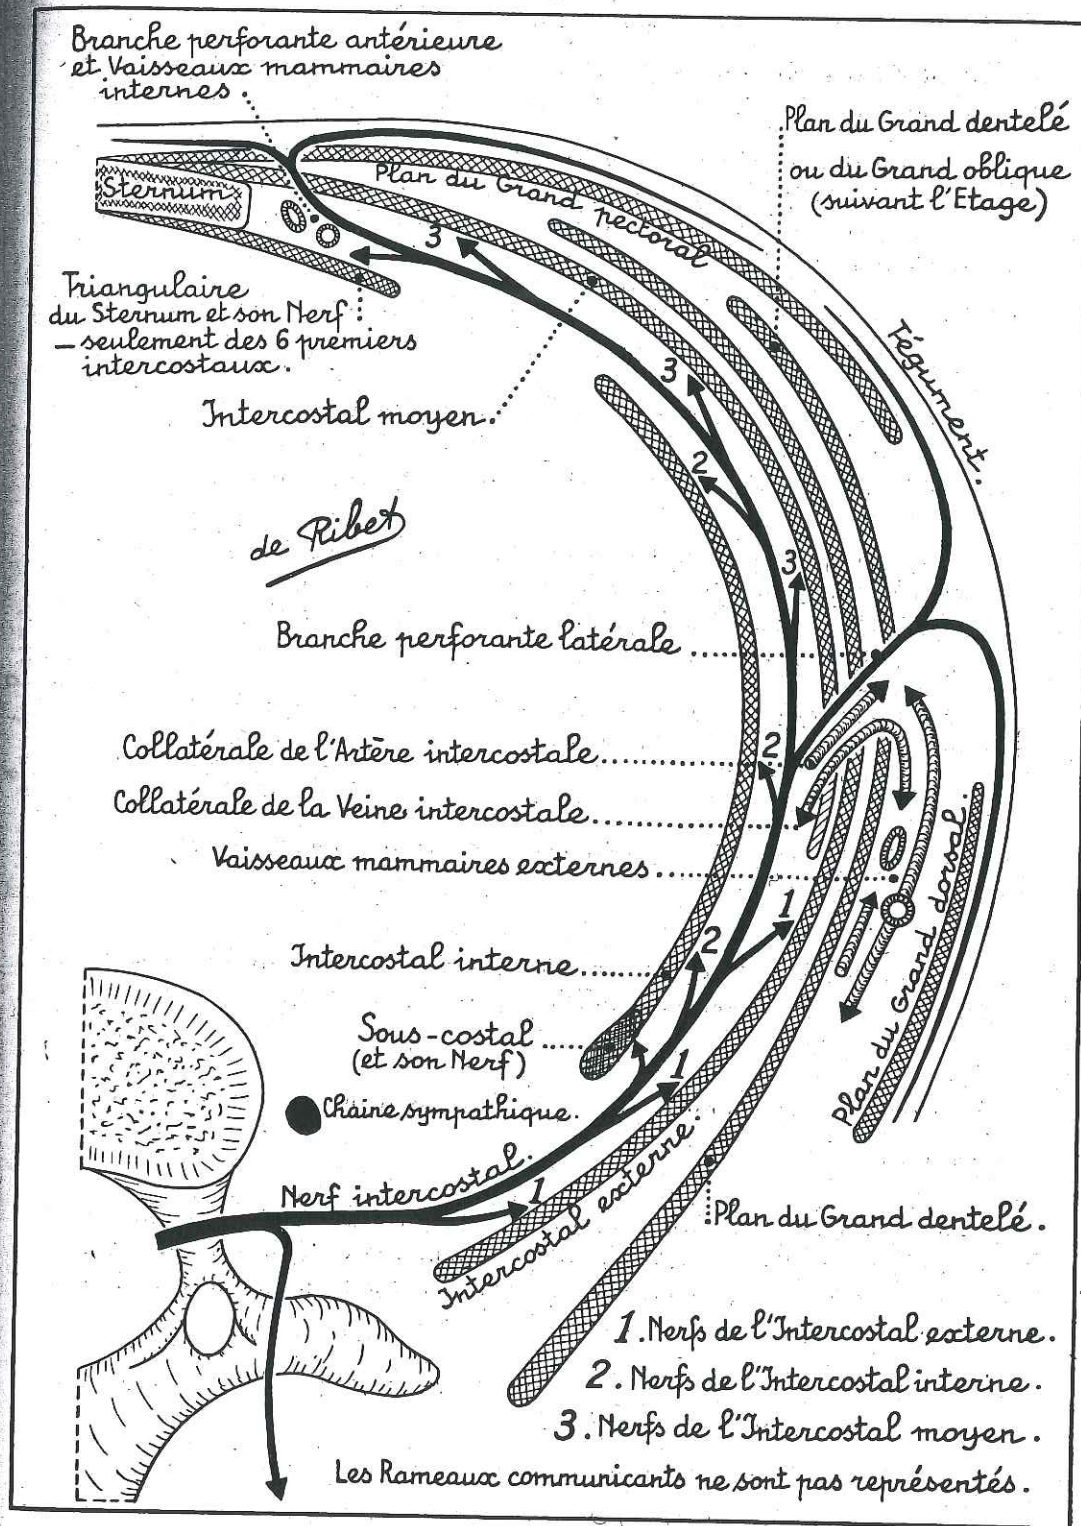 Branche perforante antérieure
et Vaisseaux mammaires
internes.
Plan du Grand dentelé
ou du Grand oblique
(suivant l'Etage)
Sternum
Plan du Grand pectoral
3
Triangulaire
du Sternum et son Nerf
– seulement des 6 premiers
intercostaux.
Tégument.
Intercostal moyen.
3
2
de Ribet
3
Branche perforante latérale
Collatérale de l'Artère intercostale
2
Collatérale de la Veine intercostale
Vaisseaux mammaires externes
Plan du Grand dorsal.
1
2
Intercostal interne
Sous-costal
(et son Nerf)
1
Chaine sympathique.
Nerf intercostal.
1
Intercostal externe.
Plan du Grand dentelé.
1. Nerfs de l'Intercostal externe.
2. Nerfs de l'Intercostal interne.
3. Nerfs de l'Intercostal moyen.
Les Rameaux communicants ne sont pas représentés.